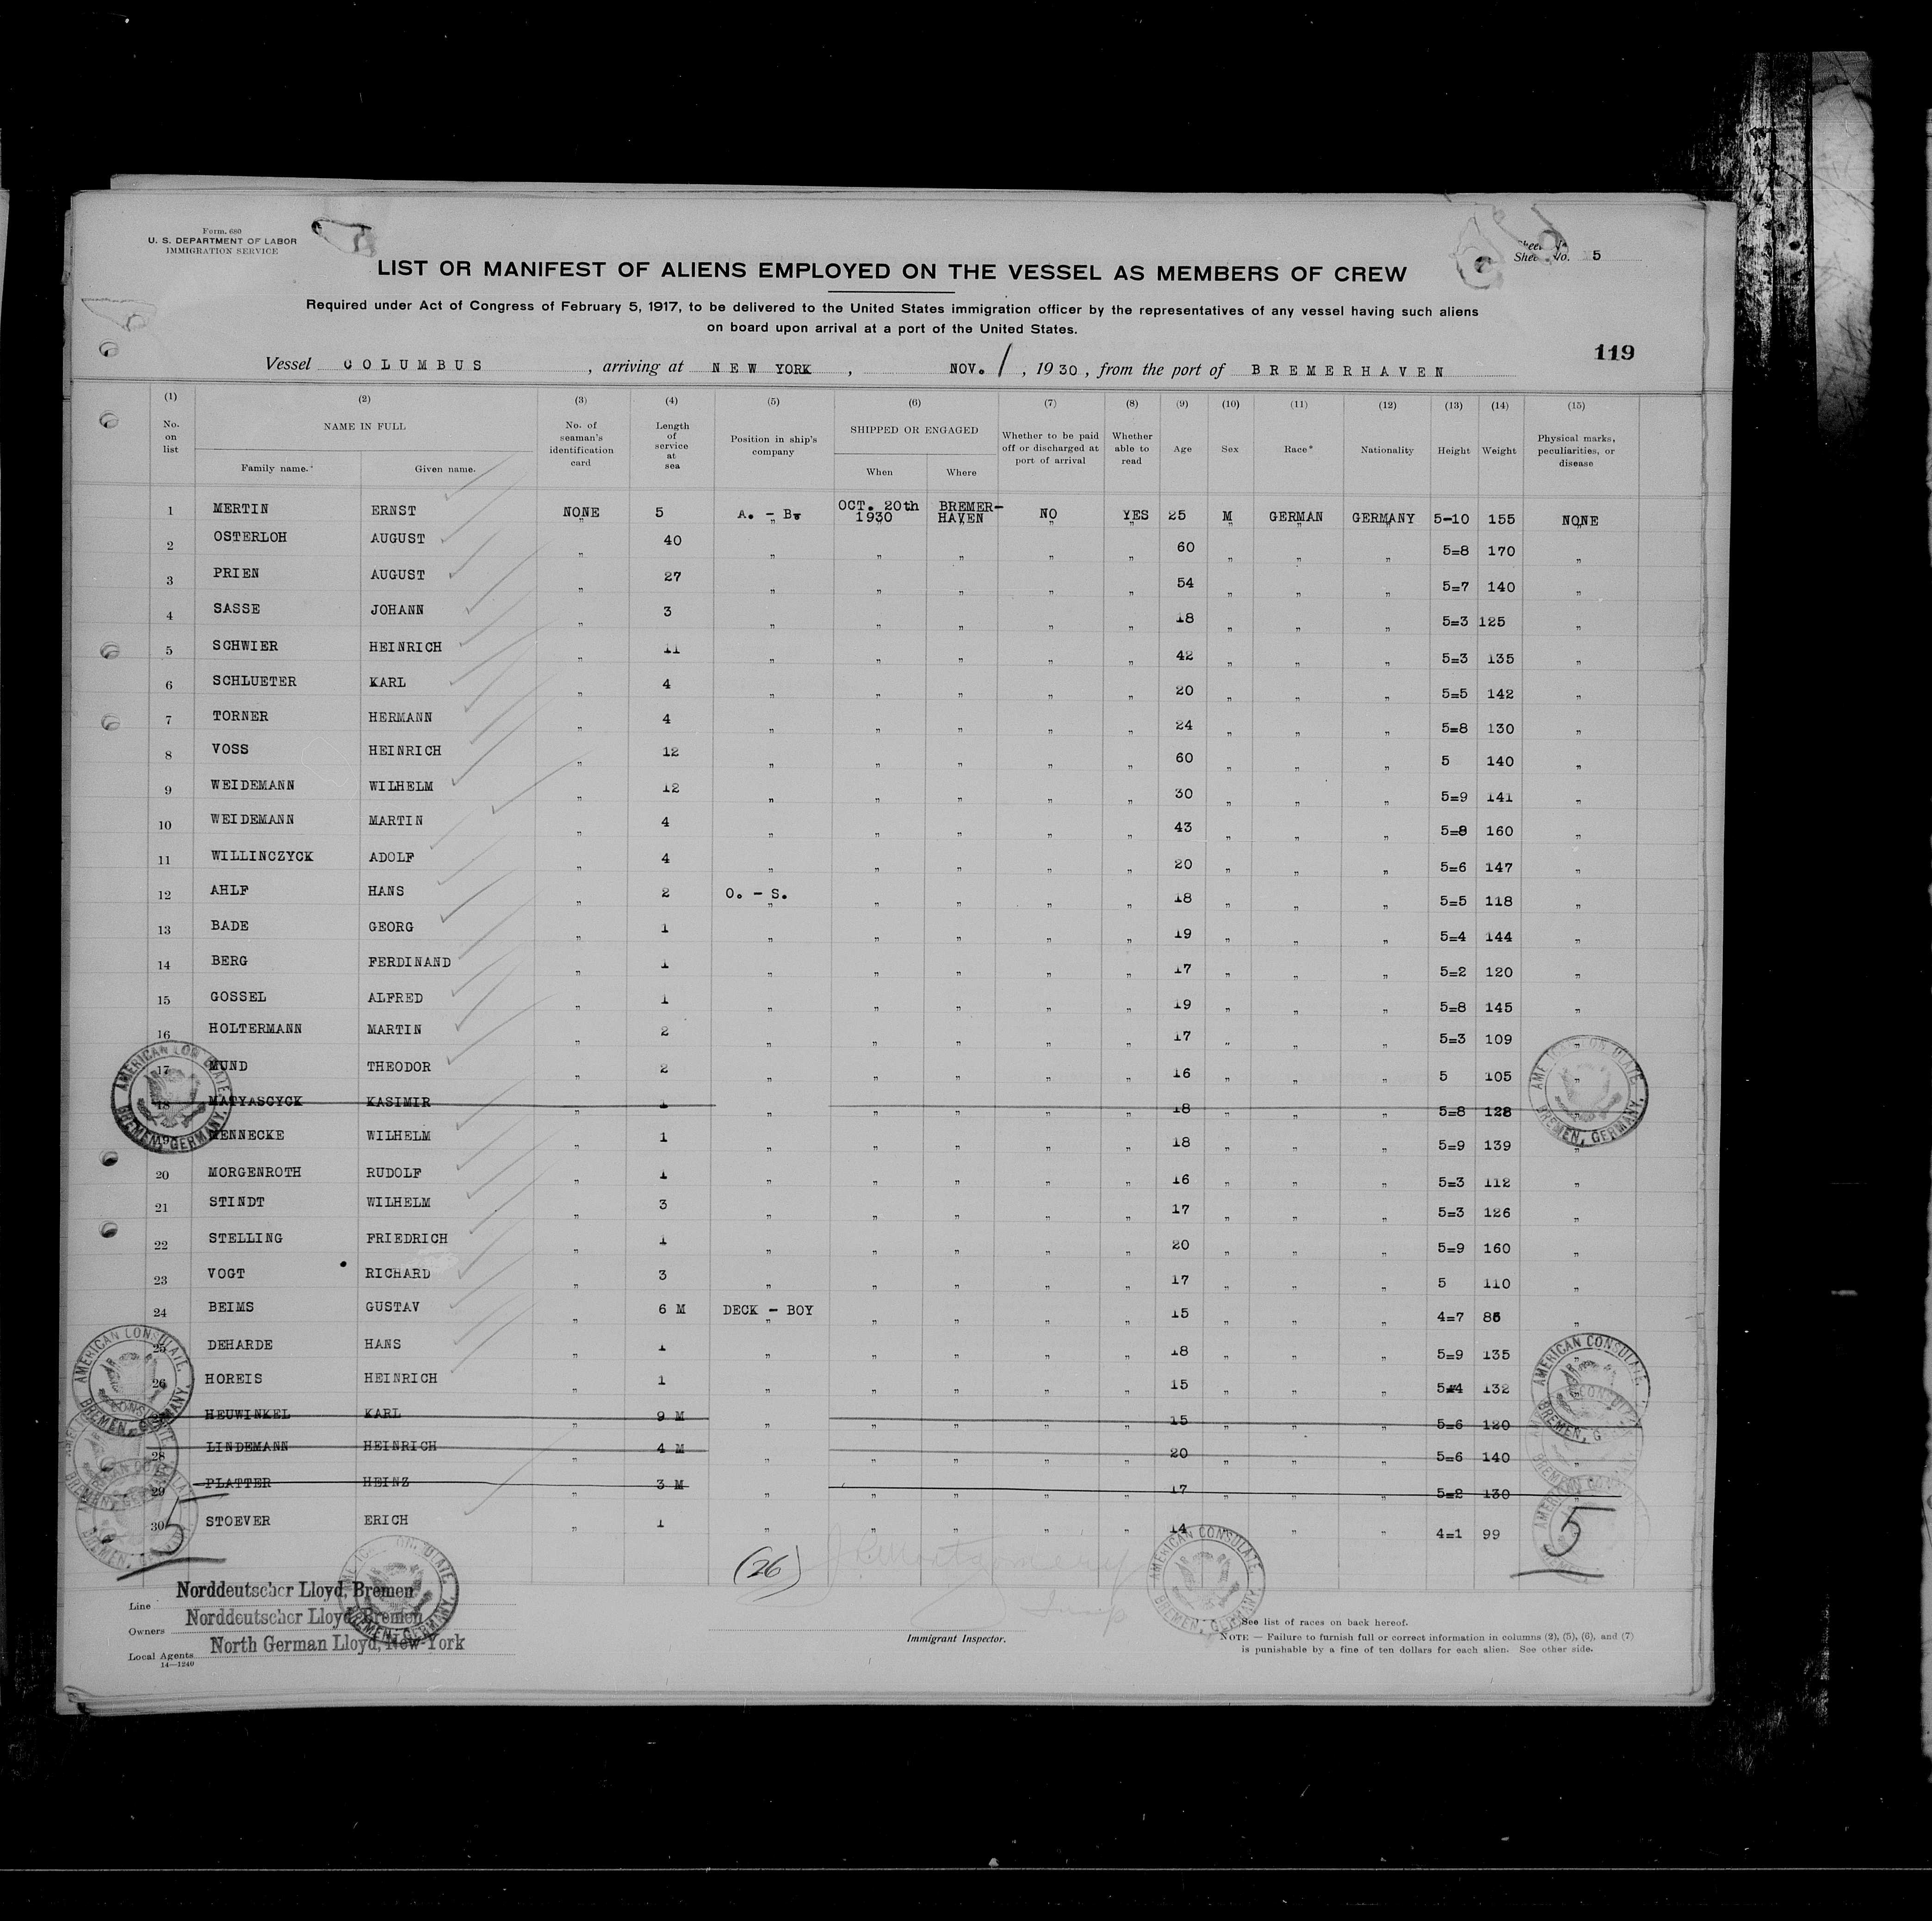 Form. 680
U. S. DEPARTMENT OF LABOR
IMMIGRATION SERVICE
Sheet No. 5
LIST OR MANIFEST OF ALIENS EMPLOYED ON THE VESSEL AS MEMBERS OF CREW
Required under Act of Congress of February 5, 1917, to be delivered to the United States immigration officer by the representatives of any vessel having such aliens
on board upon arrival at a port of the United States.
119
Vessel COLUMBUS, arriving at NEW YORK, NOV. 1, 1930, from the port of BREMERHAVEN
(1) (2) (3) (4) (5) (6) (7) (8) (9) (10) (11) (12) (13) (14) (15)
No. on list NAME IN FULL Family name. Given name. No. of seaman's identification card Length of service at sea Position in ship's company SHIPPED OR ENGAGED When Where Whether to be paid off or discharged at port of arrival Whether able to read Age Sex Race* Nationality Height Weight Physical marks, peculiarities, or disease
1 MERTIN ERNST NONE 5 A. - B. OCT. 20th 1930 BREMER-HAVEN NO YES 25 M GERMAN GERMANY 5-10 155 NONE
2 OSTERLOH AUGUST " 40 " " " " " 60 " " " 5=8 170 "
3 PRIEN AUGUST " 27 " " " " " 54 " " " 5=7 140 "
4 SASSE JOHANN " 3 " " " " " 18 " " " 5=3 125 "
5 SCHWIER HEINRICH " 11 " " " " " 42 " " " 5=3 135 "
6 SCHLUETER KARL " 4 " " " " " 20 " " " 5=5 142 "
7 TORNER HERMANN " 4 " " " " " 24 " " " 5=8 130 "
8 VOSS HEINRICH " 12 " " " " " 60 " " " 5 140 "
9 WEIDEMANN WILHELM " 12 " " " " " 30 " " " 5=9 141 "
10 WEIDEMANN MARTIN " 4 " " " " " 43 " " " 5=8 160 "
11 WILLINCZYCK ADOLF " 4 " " " " " 20 " " " 5=6 147 "
12 AHLF HANS " 2 O. - S. " " " " 18 " " " 5=5 118 "
13 BADE GEORG " 1 " " " " " 19 " " " 5=4 144 "
14 BERG FERDINAND " 1 " " " " " 17 " " " 5=2 120 "
15 GOSSEL ALFRED " 1 " " " " " 19 " " " 5=8 145 "
16 HOLTERMANN MARTIN " 2 " " " " " 17 " " " 5=3 109 "
17 MUND THEODOR " 2 " " " " " 16 " " " 5 105 "
18 MATYASCYCK KASIMIR " 1 " " " " " 18 " " " 5=8 128 "
19 MENNECKE WILHELM " 1 " " " " " 18 " " " 5=9 139 "
20 MORGENROTH RUDOLF " 1 " " " " " 16 " " " 5=3 112 "
21 STINDT WILHELM " 3 " " " " " 17 " " " 5=3 126 "
22 STELLING FRIEDRICH " 1 " " " " " 20 " " " 5=9 160 "
23 VOGT RICHARD " 3 " " " " " 17 " " " 5 110 "
24 BEIMS GUSTAV " 6 M DECK - BOY " " " " 15 " " " 4=7 "
25 DEHARDE HANS " 1 " " " " " 18 " " " 5=9 135 "
26 HOREIS HEINRICH " 1 " " " " " 15 " " " 5=4 132 "
27 HEUWINKEL KARL " 9 M " " " " " 15 " " " 5=6 120 "
28 LINDEMANN HEINRICH " 4 M " " " " " 20 " " " 5=6 140 "
29 PLATTER HEINZ " 3 M " " " " " 17 " " " 5=2 130 "
30 STOEVER ERICH " 1 " " " " " 14 " " " 4=1 99 "
5
5
(26)
AMERICAN CONSULATE. BREMEN, GERMANY.
Line Norddeutscher Lloyd, Bremen
Owners Norddeutscher Lloyd, Bremen
Local Agents North German Lloyd, New-York
14—1240
Immigrant Inspector.
See list of races on back hereof.
NOTE — Failure to furnish full or correct information in columns (2), (5), (6), and (7)
is punishable by a fine of ten dollars for each alien. See other side.